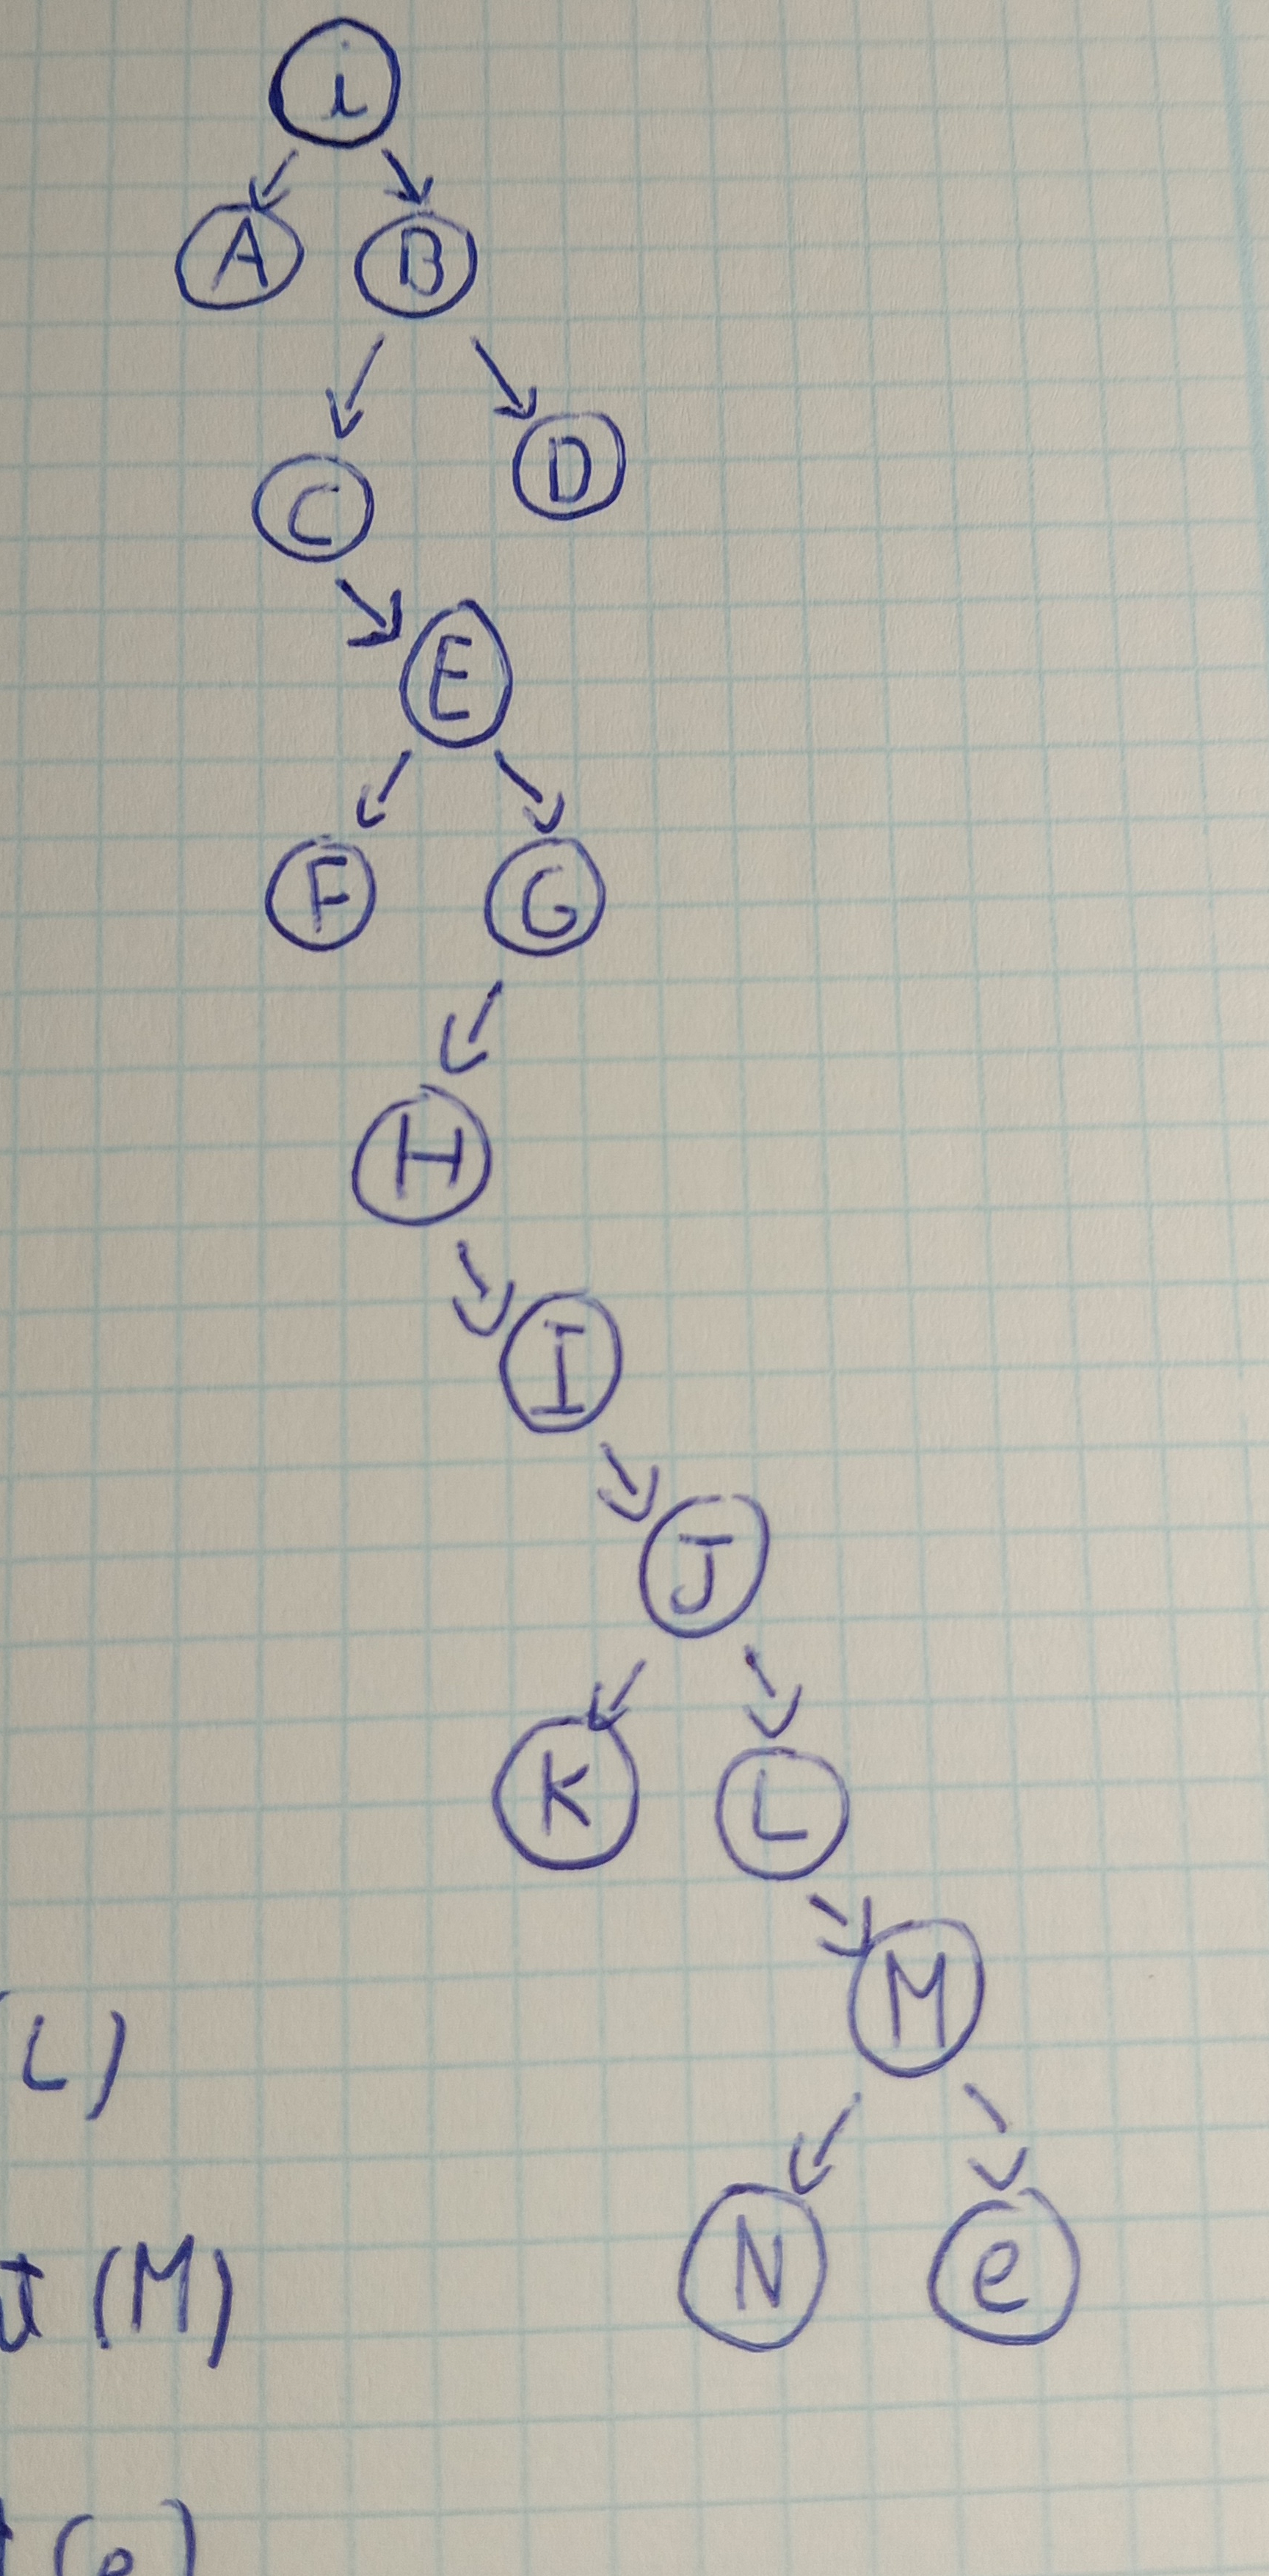 i
A B
C D
E
F G
H
I
J
K L
M
(L)
N e
(M)
(e)